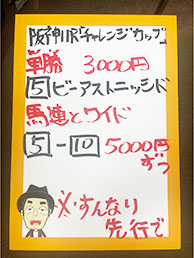 阪神11R「チャレンジカップ」
単勝 3000円
5 ビーアストニッシド
馬連とワイド
5-10 5000円
ずつ
※すんなり
先行で